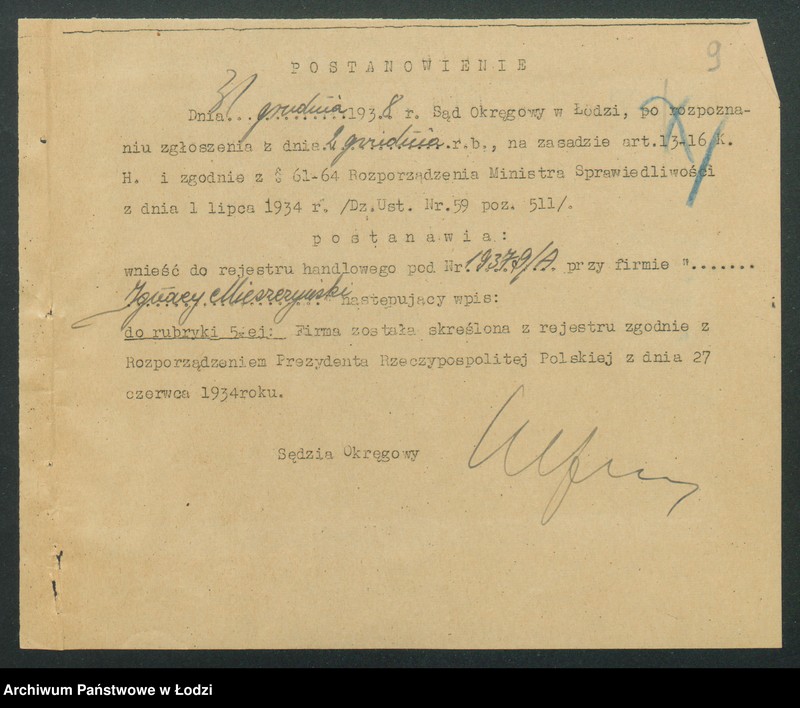 9
POSTANOWIENIE
Dnia 31 grudnia 1938 r. Sąd Okręgowy w Łodzi, po rozpozna-
niu zgłoszenia z dnia 2 grudnia r.b., na zasadzie art.13-16 K.
H. i zgodnie z § 61-64 Rozporządzenia Ministra Sprawiedliwości
z dnia 1 lipca 1934 r. /Dz.Ust. Nr.59 poz. 511/.
postanawia:
wnieść do rejestru handlowego pod Nr. 19379/A. przy firmie ".......
Ignacy Mieszczyński następujący wpis:
do rubryki 5-ej: Firma została skreślona z rejestru zgodnie z
Rozporządzeniem Prezydenta Rzeczypospolitej Polskiej z dnia 27
czerwca 1934roku.
Sędzia Okręgowy
Archiwum Państwowe w Łodzi